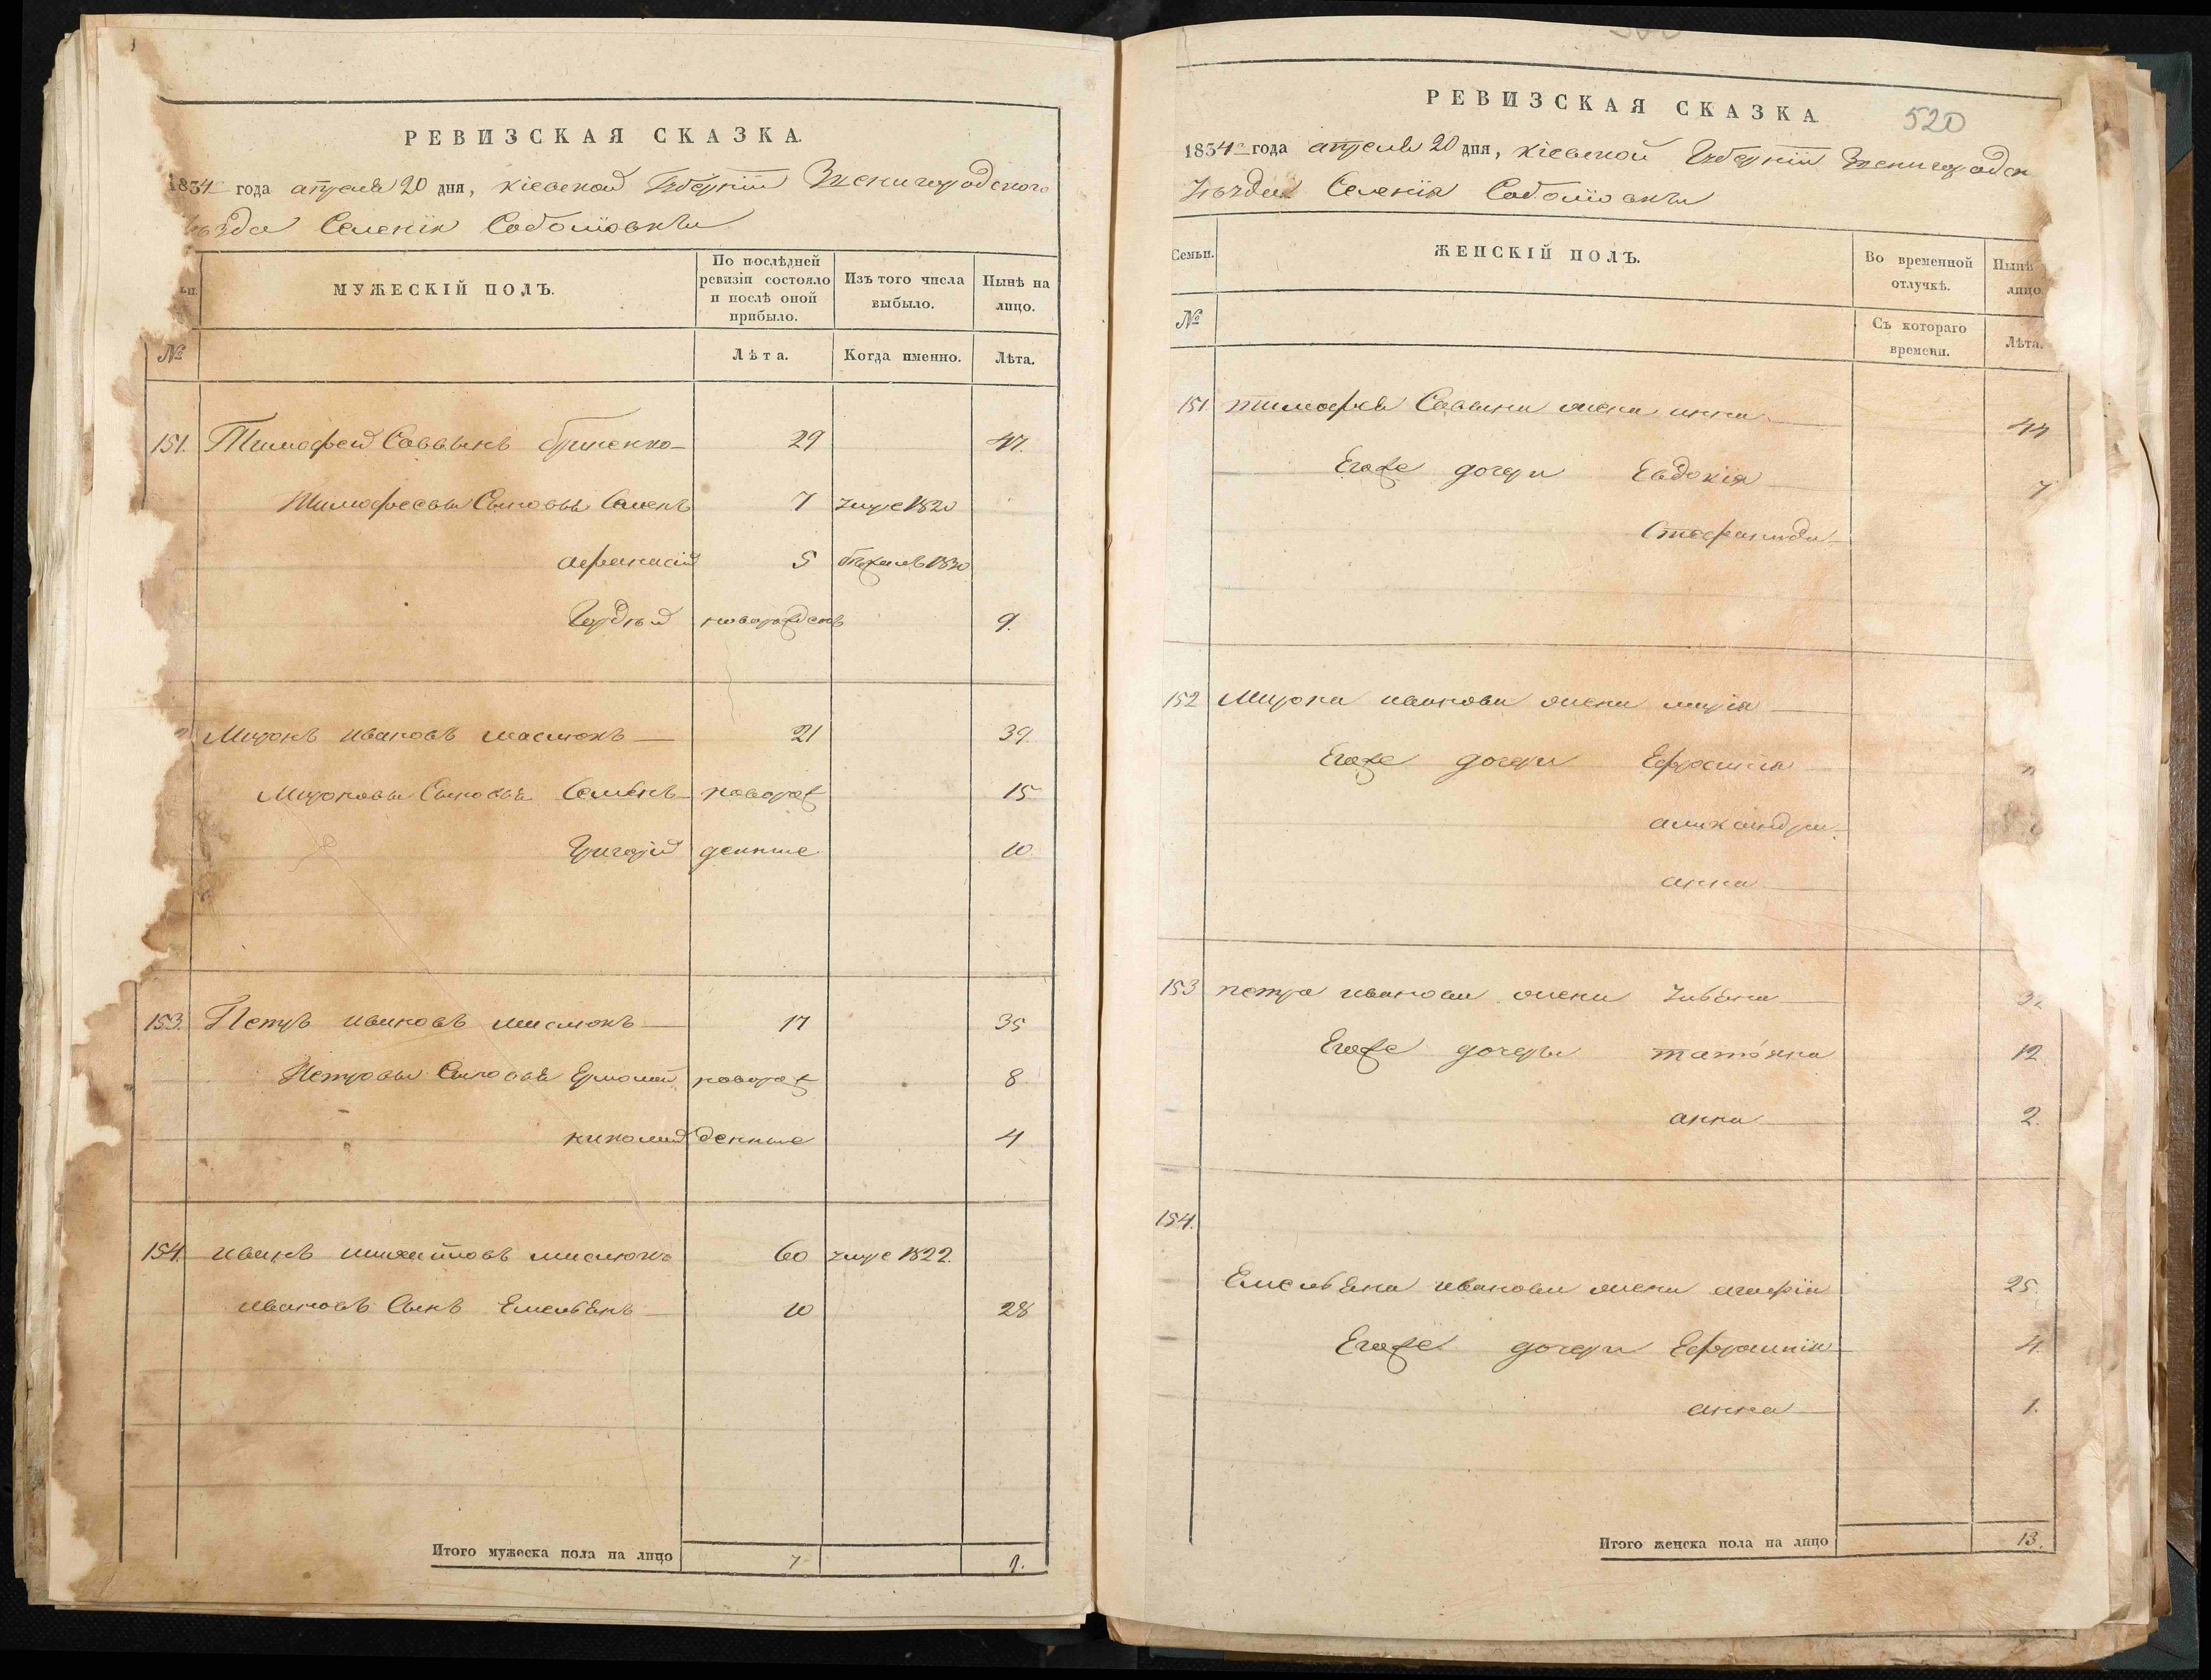 РЕВИЗСКАЯ СКАЗКА.
1834 года апреля 20 дня, кіевской Губерніи Звенигородского
уѣзда Селенія Соболювки
МУЖЕСКІЙ ПОЛЪ.
По послѣдней ревизіи состояло и послѣ оной прибыло.
Изъ того числа выбыло.
Ныиѣ на лицо.
№
Лѣта.
Когда именно.
Лѣта.
151. Тимофей Саввинъ 29 47.
Тимофеевы Сыновья Семенъ 7 умре 1820
афанасій 5 1830
Гордѣй новорожденъ 9.
Миронъ ивановъ масюкъ 21 39.
Мироновы Сыновья Семенъ новорож 15
Григорій денные 10.
153. Петръ ивановъ масюкъ 17 35
Петровы Сыновья Ермолай новорож 8
николай денные 4
154. иванъ масюкъ 60 умре 1822.
ивановъ Сынъ Емельянъ 10 28
Итого мужеска пола на лицо 7 9.
520
РЕВИЗСКАЯ СКАЗКА
1834 года апреля 20 дня, кіевской Губерніи Звенигородск
уѣзда Селенія Соболювки
Семьи.
ЖЕНСКІЙ ПОЛЪ.
Во временной отлучкѣ.
Нынѣ лицо.
№
Съ котораго времени.
Лѣта.
151. тимофея Саввина жена анна 44
Егоже дочери Евдокія 7
Стефанида
152 Мирона иванова жена марія
Егоже дочери Ефросинія
александра
анна
153 петра иванова жена Ульяна
Егоже дочери татьяна 12.
анна 2.
154.
Емельяна иванова жена агафія 25.
Егоже дочери Ефросинія 4.
анна 1.
Итого женска пола на лицо 13.